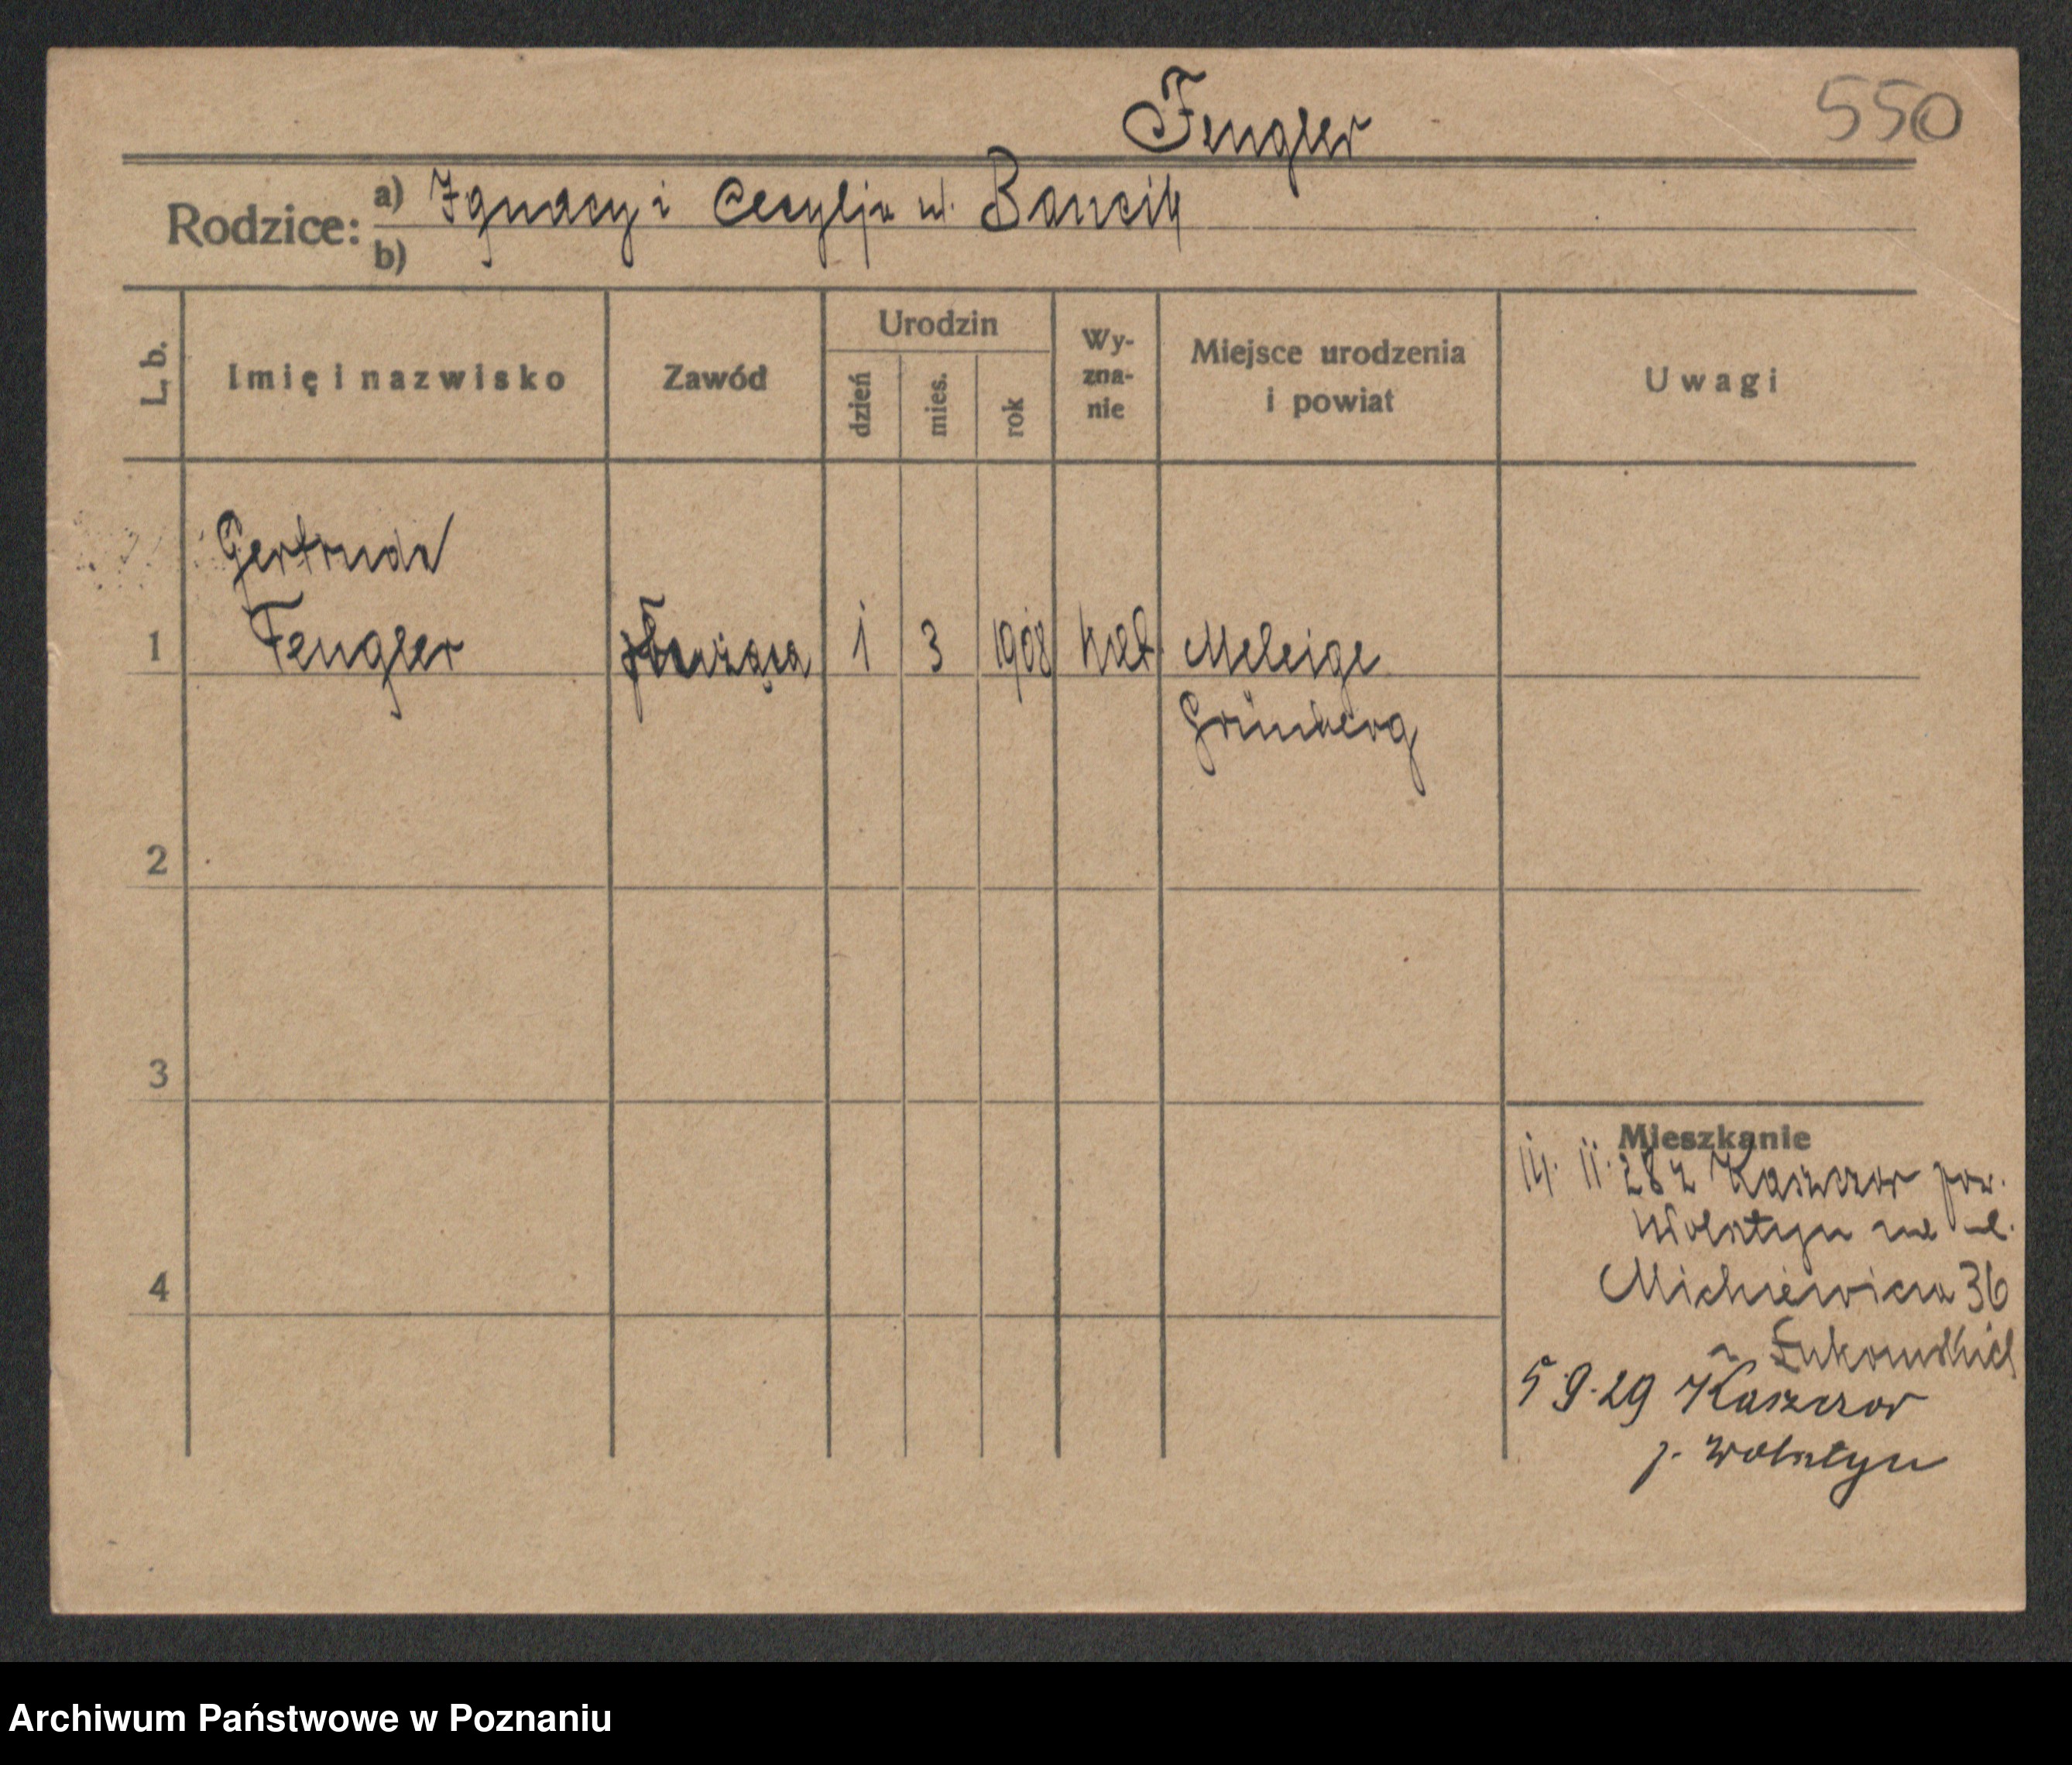 Fengler
550
Rodzice: a) Ignacy i Cecylja ul. Bancik
b)
L. b.
Imię i nazwisko
Zawód
Urodzin
dzień
mies.
rok
Wy-
zna-
nie
Miejsce urodzenia
i powiat
Uwagi
Gertruda
1 Fengler służąca 1 3 1908 kat. Meleige
Grünberg
2
3
4
Mieszkanie
14. 11. 28 z Kaszczor pow.
Wolsztyn na ul.
Mickiewicza 36
Łukomskich
5 9. 29 Kaszczor
p. Wolsztyn
Archiwum Państwowe w Poznaniu